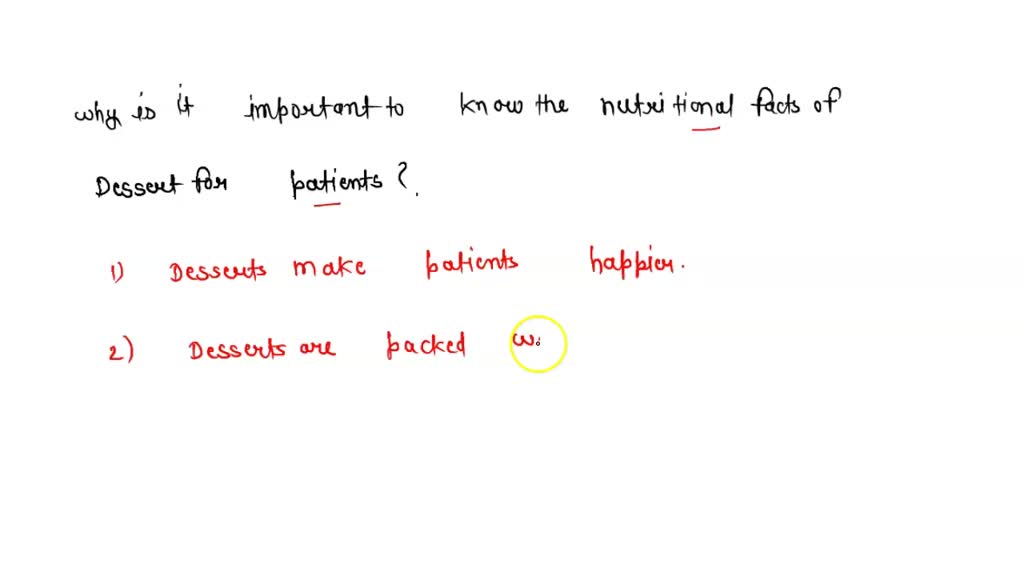 why is it important to know the nutritional facts of
Dessert for patients ?.
1) Desserts make patients happier.
2) Desserts are packed w.